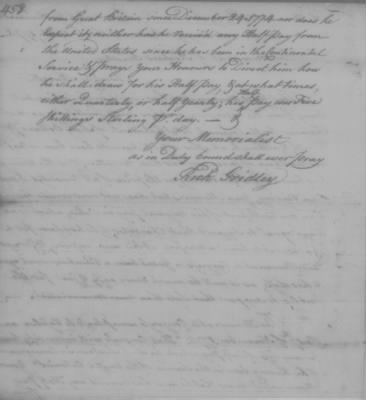 458
from Great Britain since December 24 1774 nor does he
expect it, neither has he receiv'd any Half pay from
the United States since he has been in the Continental
Service & prays your Honours to Direct him how
he shall draw for his Half Pay, & at what times,
either Quarterly, or half Yearly; his Half Pay was Five
Shillings Sterling Pr. day. —
Your Memorialist
as in Duty bound shall ever pray
Richd. Gridley